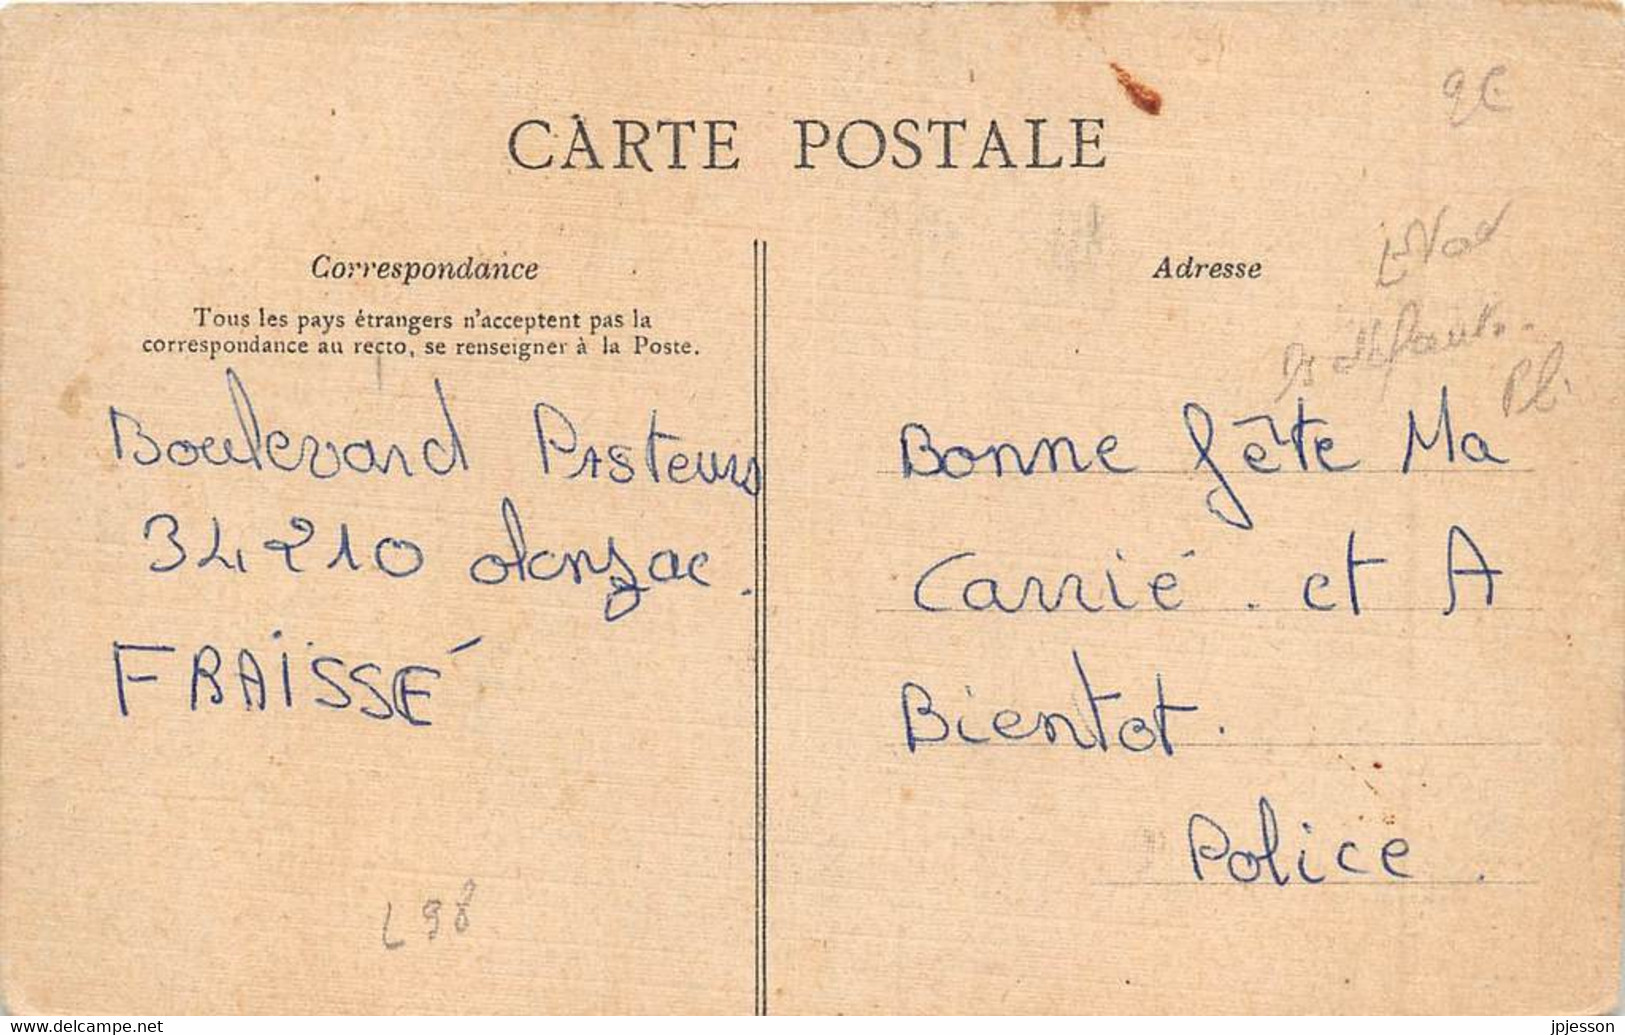 CARTE POSTALE
Correspondance
Tous les pays étrangers n'acceptent pas la
correspondance au recto, se renseigner à la Poste.
Boulevard Pasteur
34210 olonzac.
FRAÏSSÉ
L98
Adresse
Bonne fête Ma
Carrié. et A
Bientot.
Police.
www.delcampe.net
jpjesson